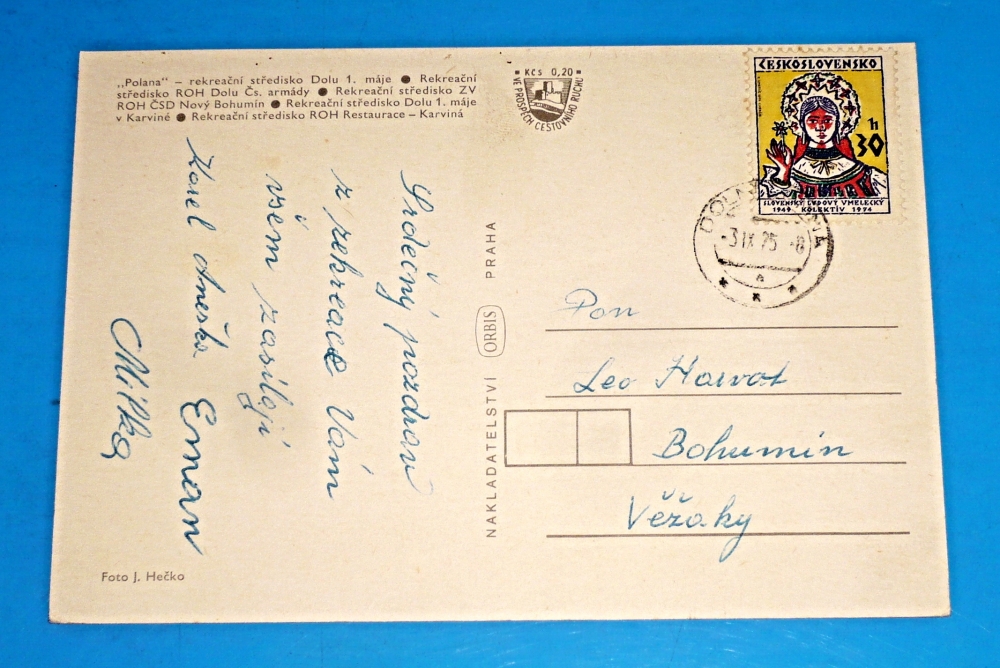 „Polana" – rekreační středisko Dolu 1. máje ● Rekreační
středisko ROH Dolu Čs. armády ● Rekreační středisko ZV
ROH ČSD Nový Bohumín ● Rekreační středisko Dolu 1. máje
v Karviné ● Rekreační středisko ROH Restaurace – Karviná
Kčs 0,20
VE PROSPĚCH CESTOVNÍHO RUCHU
ČESKOSLOVENSKO
30 h
SLOVENSKÝ ĽUDOVÝ UMELECKÝ
1949 KOLEKTÍV 1974
-3 IX 75 -8
Srdečný pozdrav
z rekreace Vám
všem zasílají
Karel Anežka Erman
Milka
NAKLADATELSTVÍ ORBIS PRAHA
Pan
Leo Horvat
Bohumín
Věžáky
Foto J. Hečko